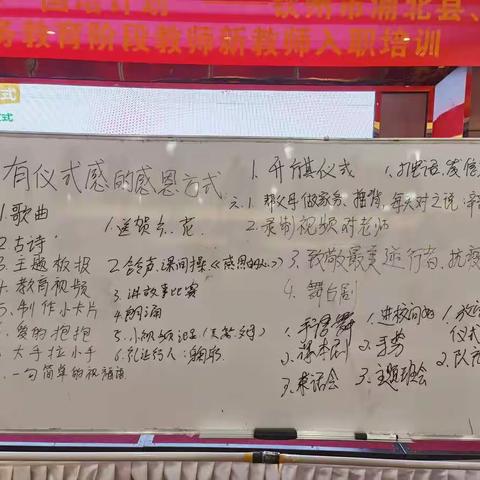 国培计划
钦州市浦北县、
务教育阶段教师新教师入职培训
式
仪式
有仪式感的感恩方式
1.歌曲
2.古诗
3.主题板报
4.教育视频
5.制作小卡片
爱的抱抱
大手拉小手
一句简单的祝福语
1.送贺卡、花
2.合唱、课间操《感恩的心》
3.讲故事比赛
4.朗诵
5.小视频记录
6.礼让行人：鞠躬
1.开学仪式
1.帮父母做家务、捶背，每天对之说：辛
2.录制视频对老师
3.致敬最美逆行者、抗疫
4.舞台剧
1.打电话、发信
1.手语舞
2.课本剧
3.来话会
1.进校问好
2.手势
3.主题班会
1.放
仪式
2.队